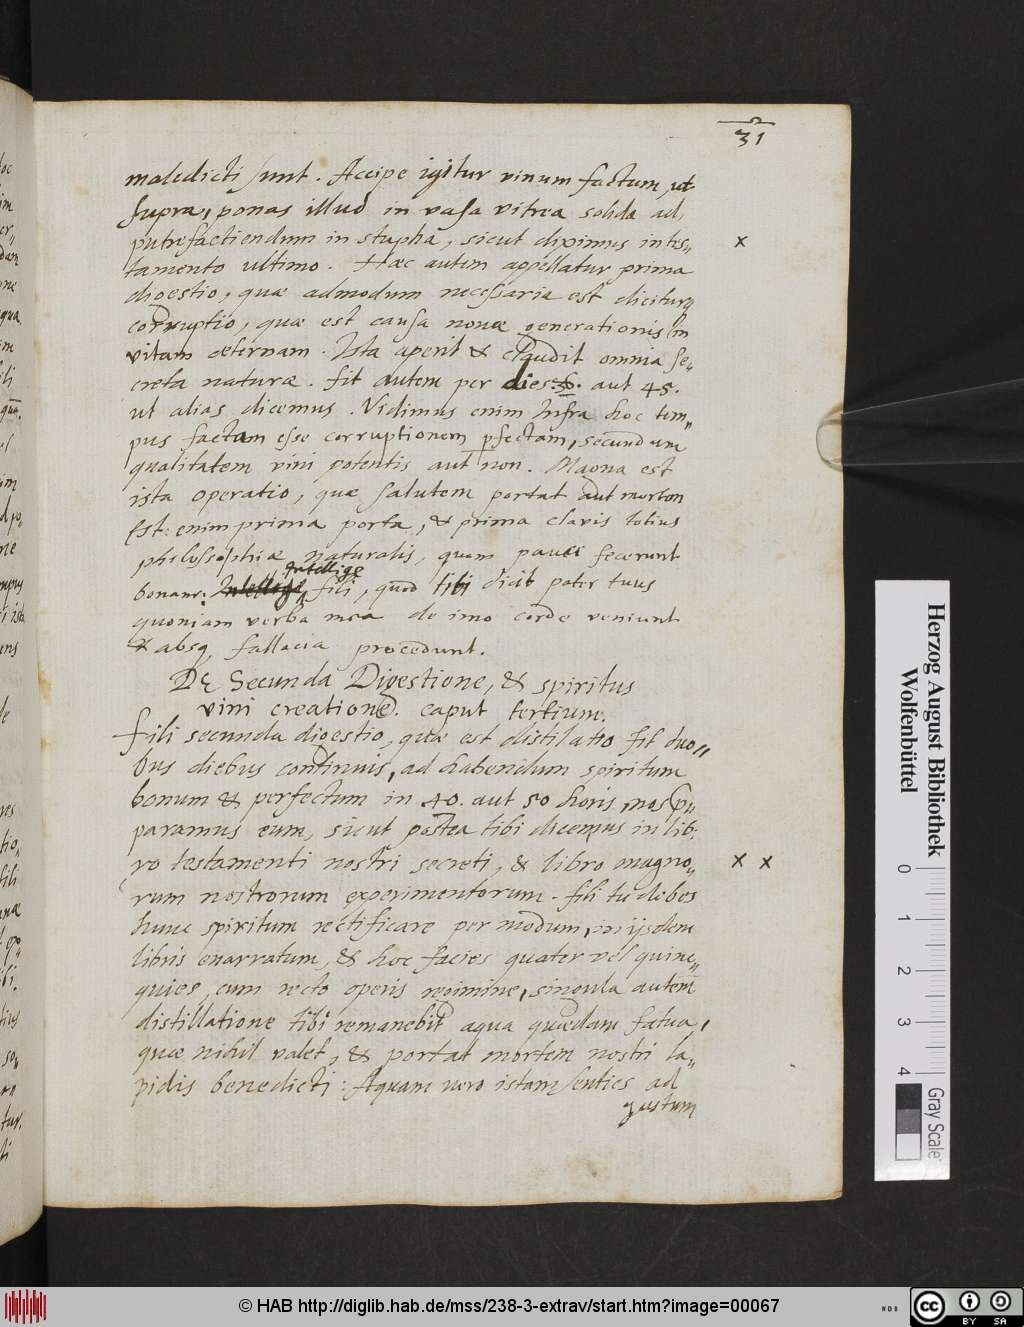 31
maledicti sunt. Accipe igitur vinum factum, ut
supra, ponas illud in vasa vitrea solida ad,
putrefactiendum in stupha, sicut diximus in tes„ x
tamento ultimo. Hæc autem appellatur prima
digestio, quæ admodum necessaria est diciturq
corruptio, quæ est causa novæ generationis in
vitam æternam. Ista aperit & claudit omnia se„
creta naturæ. fit autem per dies 30. aut 45.
ut alias dicemus. Vidimus enim Infra hoc tem„
pus factam esse corruptionem pfectam, secundum
qualitatem vini potentis aut non. Magna est
ista operatio, quæ salutem portat aut mortem
Est enim prima porta, & prima clavis totius
philosophiæ naturalis, quam pauci fecerunt
Intellige
bonam: Intellige, fili, quod tibi dicit pater tuus
quoniam verba mea de imo corde veniunt
& absq fallacia procedunt.
De Secunda Digestione, & spiritus
vini creatione. caput tertium.
fili secunda digestio, quæ est distilatio fit duo„
bus diebus continuis, ad habendum spiritum
bonum & perfectum in 40. aut 50 horis, nos pr„
paramus eum, sicut postea tibi dicemus in lib„
ro testamenti nostri secreti, & libro magno„ x x
rum nostrorum experimentorum. fili tu debes
hunc spiritum rectificare per modum, in ijsdem
libris enarratum, & hoc facies quater vel quinc„
quies, cum recto operis regimine, singula autem
distillatione tibi remanebit aqua quædam fatua,
quæ nihil valet, & portat mortem nostri la„
pidis benedicti: Aquam vero istam senties ad
gustum
Herzog August Bibliothek
Wolfenbüttel
0 1 2 3 4
Gray Scale
© HAB http://diglib.hab.de/mss/238-3-extrav/start.htm?image=00067
cc BY SA